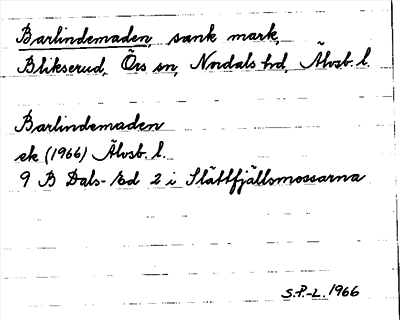 Barlindemaden, sank mark,
Blikserud, Örs sn, Nordals hd, Älvsb. l.
Barlindemaden
ek (1966) Älvsb. l.
9 B Dals-Ed 2 i Slättfjällsmossarna
S.P.-L. 1966